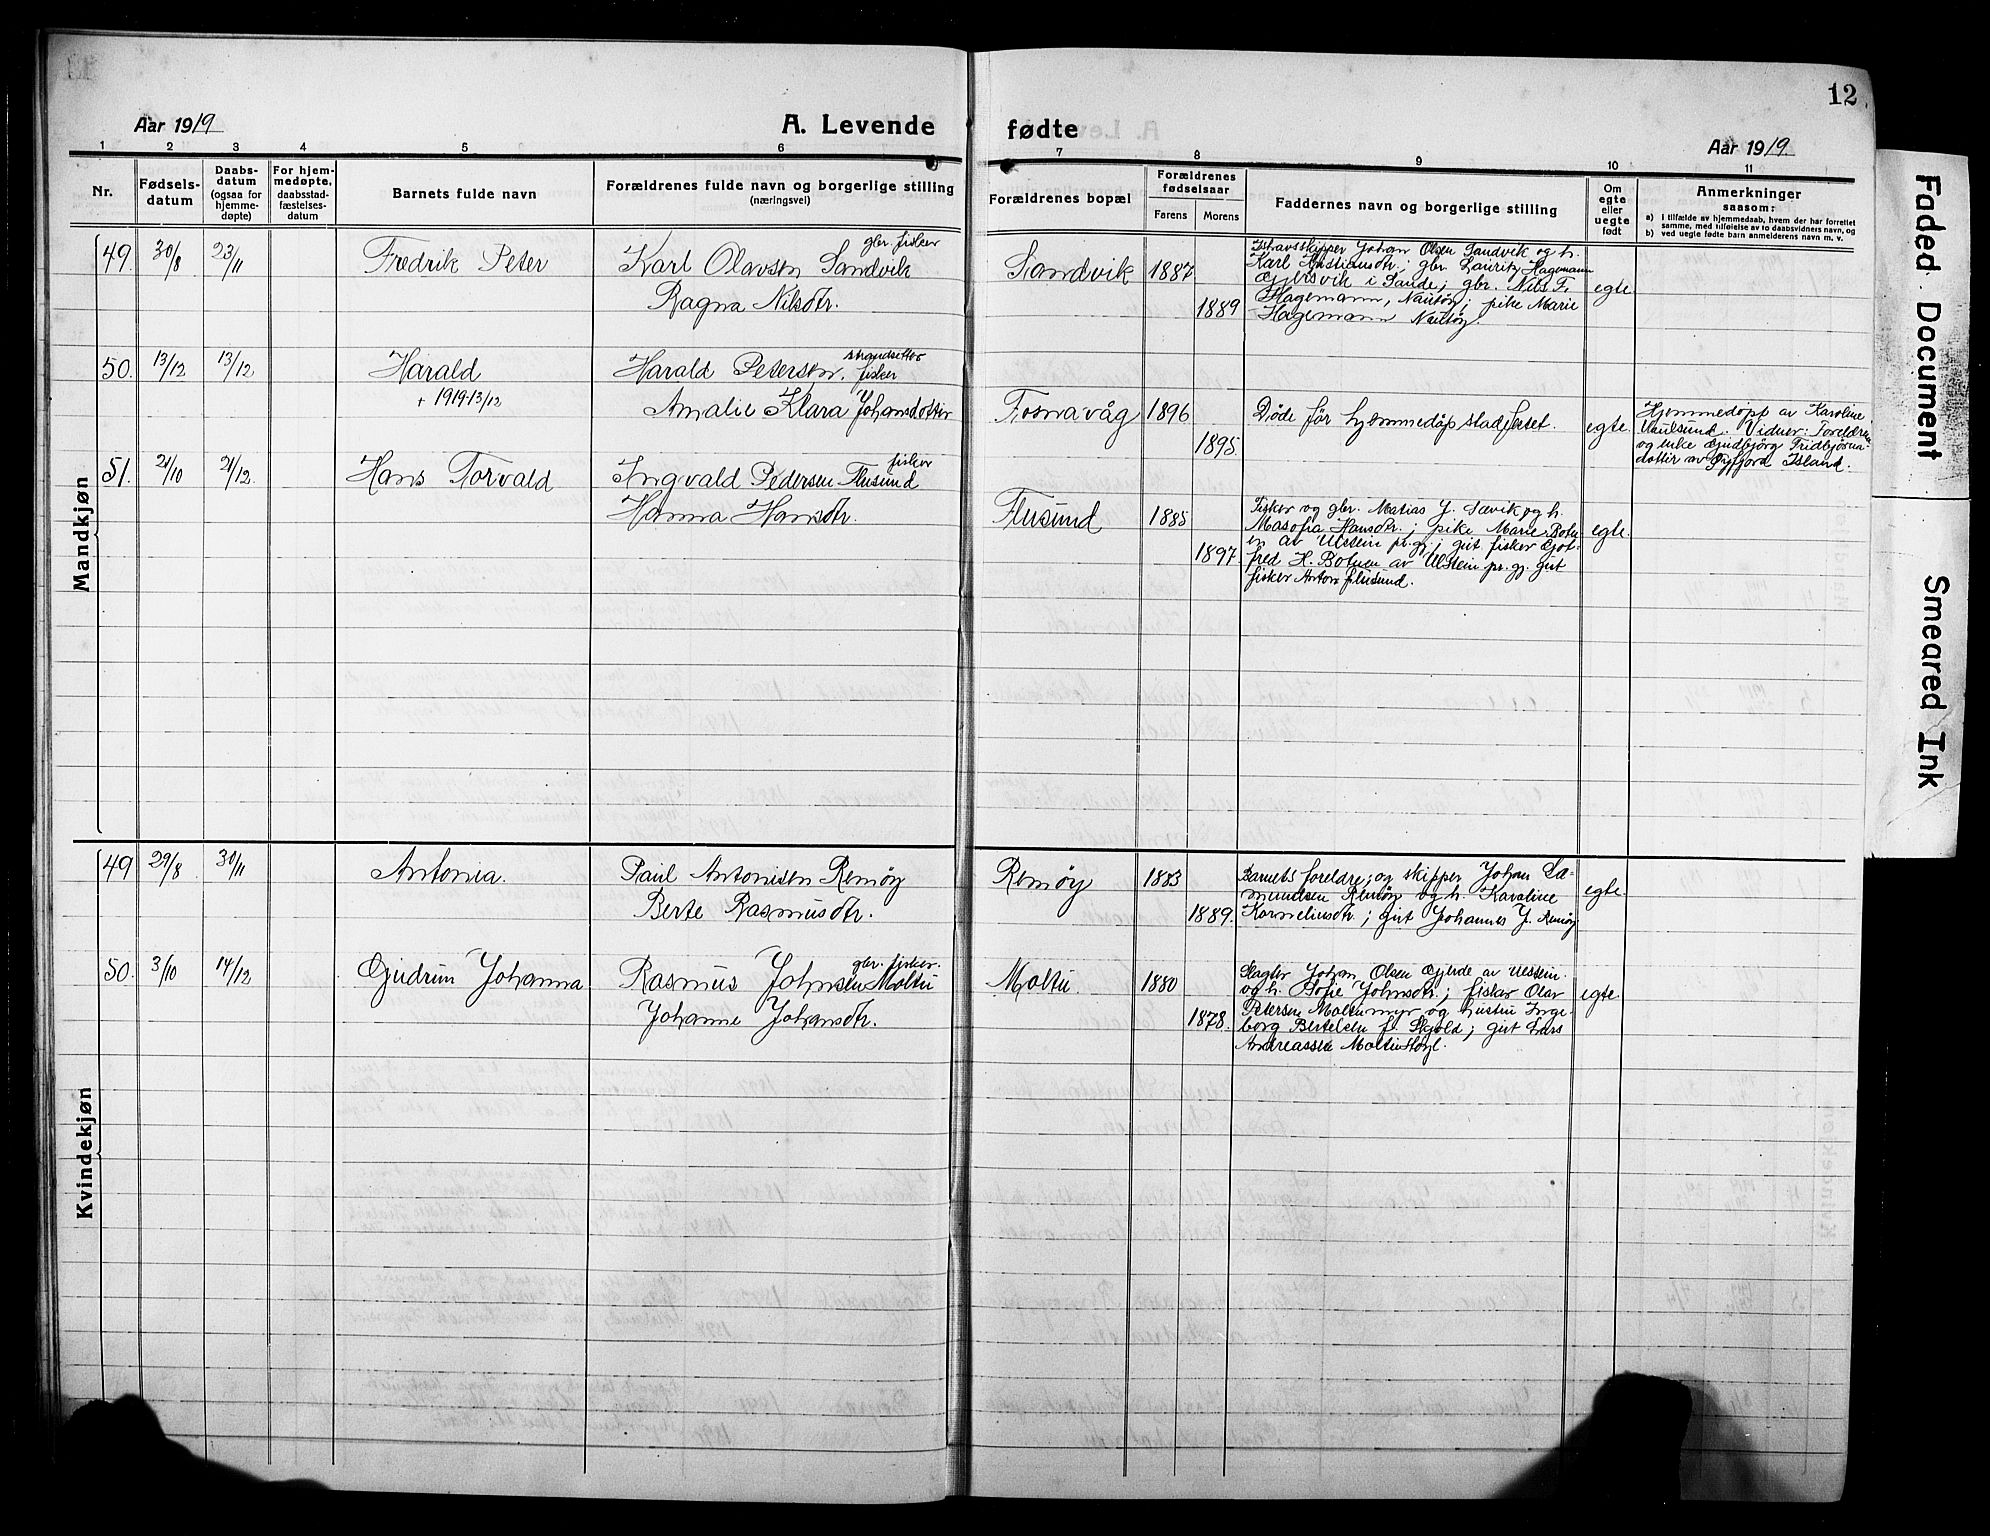 12
Aar 1919
A. Levende fødte
Aar 1919.
1 2 3 4 5 6 7 8 9 10 11
Nr.
Fødsels-
datum
Daabs-
datum
(ogsaa for
hjemme-
døpte)
For hjem-
medøpte,
daabsstad-
fæstelses-
datum
Barnets fulde navn
Forældrenes fulde navn og borgerlige stilling
(næringsvei)
Forældrenes bopæl
Forældrenes
fødselsaar
Farens
Morens
Faddernes navn og borgerlige stilling
Om
egte
eller
uegte
født
Anmerkninger
saasom:
a) i tilfælde av hjemmedaab, hvem der har forrettet
samme, med tilføielse av to daabsvidners navn, og
b) ved uegte fødte barn anmelderens navn m. v.
Mandkjøn
49. 30/8 23/11 Fredrik Peter
gbr. fisker
Karl Olavsen Sandvik
Ragna Nilsdtr.
Sandvik 1887
1889
Ishavsskipper Johan Olsen Sandvik og h.
Karl Kristiansdtr.; gbr. Lauritz Hagemann
Gjersvik i Sande; gbr. Nils F.
Hagemann, Nautøy; pike Marie
Hagemann Nautøy.
egte.
50. 13/12 13/12 Harald
+ 1919 13/12
strandsitter
Harald Petersen, fisker
Amalie Klara Johansdotter
Fosnavåg 1896
1895.
Døde før hjemmedåp stadfestet.
egte.
Hjemmedøpt av Karoline
Vidner: Foreldrene
og enke Gudbjörg Fridbjörna
dottir av Øyfjord Island.
51. 21/10 21/12 Hans Torvald
fisker
Ingvald Pedersen Flusund
Hanna Hansdtr.
Flusund 1885
1897.
Fisker og gbr. Matias J. Sævik og h.
Masofia Hansdtr.; pike Marie Botn-
en av Ulstein pr.gj.; gut fisker Got-
fred H. Botnen av Ulstein pr. gj. gut
fisker Anton Flusund.
egte.
Kvindekjøn
49 29/8 30/11 Antonia.
Paul Antonisen Remøy
Berte Rasmusdtr.
Remøy 1883
1889.
Barnets foreldre; og skipper Johan Sæ-
mundsen Remøy og h. Karoline
Korneliusdtr.; gut Johannes J. Remøy
egte.
50. 3/10 14/12 Gudrun Johanna
gbr. fisker.
Rasmus Johnsen Moltu
Johanne Johansdtr.
Moltu. 1880
1878.
Slagter Johan Olsen Gjerde av Ulstein.
og h. Sofie Johnsdtr.; fisker Olav
Petersen Moltumyr og hustru Inge-
borg Bertelsen f. Skjold; gut Lars
Andreassen
egte.
Faded Document
Smeared Ink